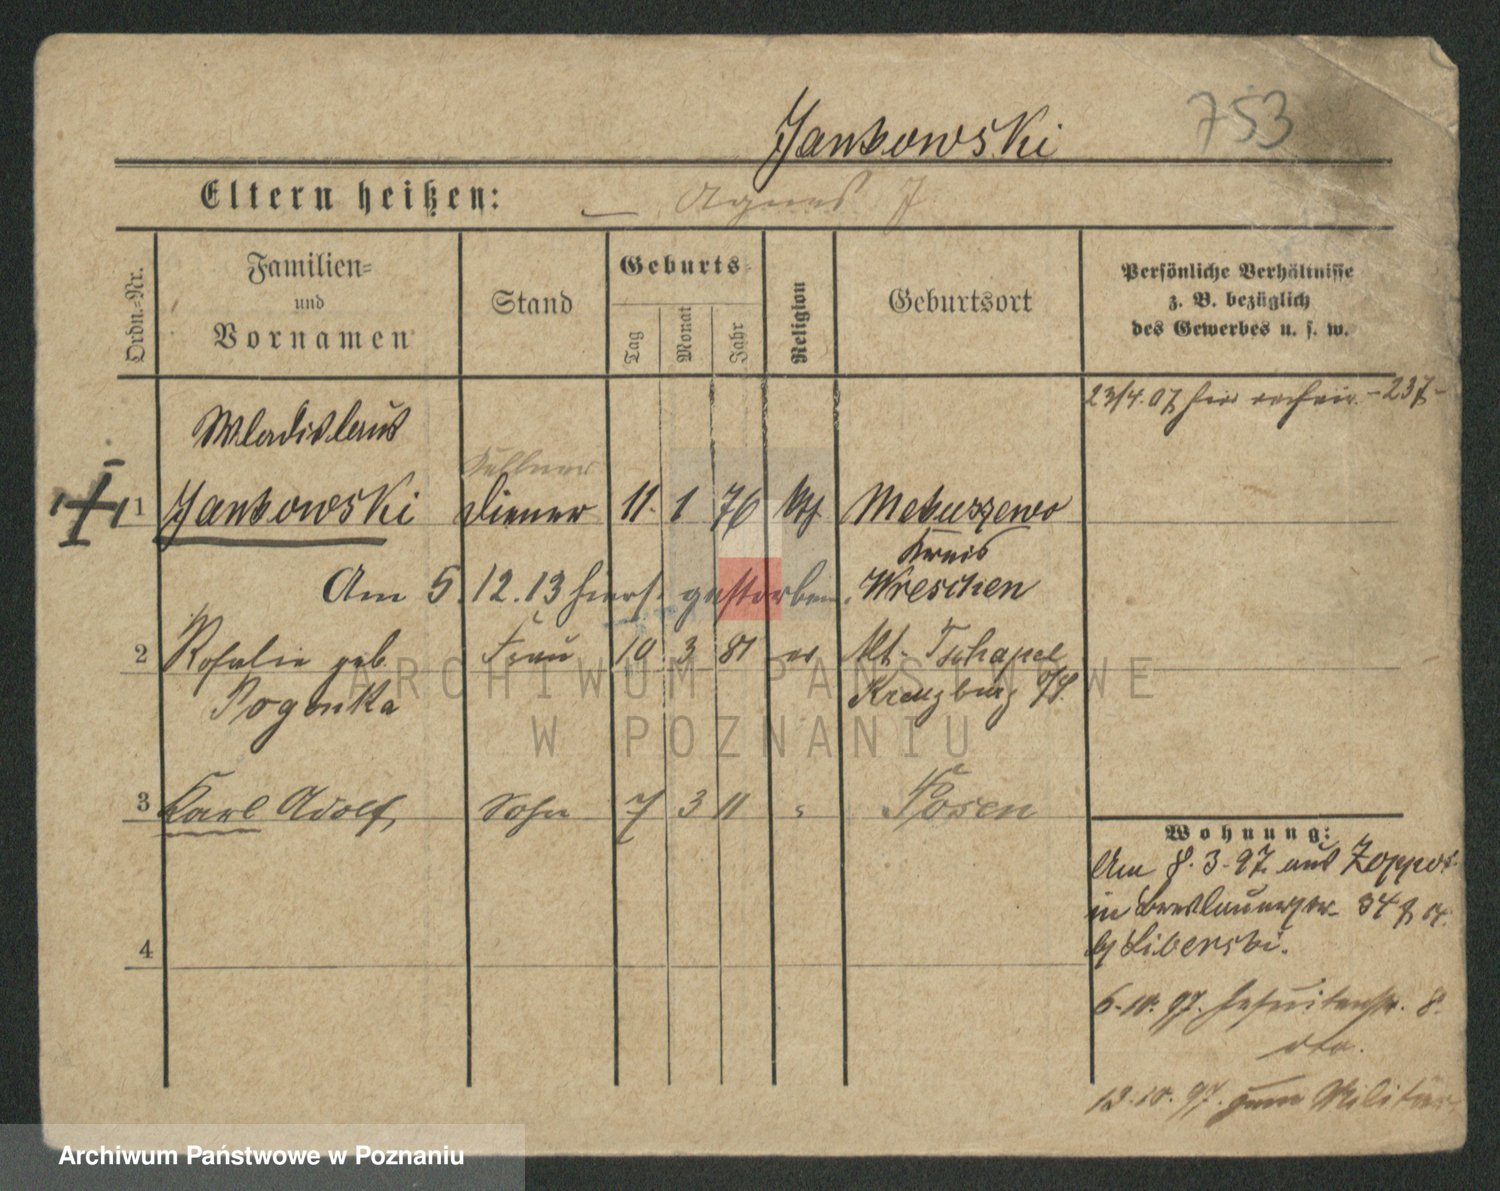 753
Jankowski
Eltern heißen: — Agnes J
Ordn.-Nr.
Familien-
und
Vornamen
Stand
Geburts-
Tag
Monat
Jahr
Religion
Geburtsort
Persönliche Verhältnisse
z. B. bezüglich
des Gewerbes u. s. w.
23/4.07 hier -237-
Wladislaus
Kellner
1 Jankowski Diener 11. 1 76 kth
Kreis
Am 5.12.13 hiers. gestorben. Wreschen
2 Rosalie geb. Frau 10 3 81 Alt-Tschapel
Pogonka Kreuzburg O/S.
3 Karl Adolf, Sohn 7 3 11 " Posen
4
Wohnung:
Am 8.3.97 aus Zoppot
in Breslauerstr. 34
b/ Liberski.
6.10.97. Jesuitenstr. 8.
dto.
13.10.97. zum Militär
ARCHIWUM PAŃSTWOWE
W POZNANIU
Archiwum Państwowe w Poznaniu